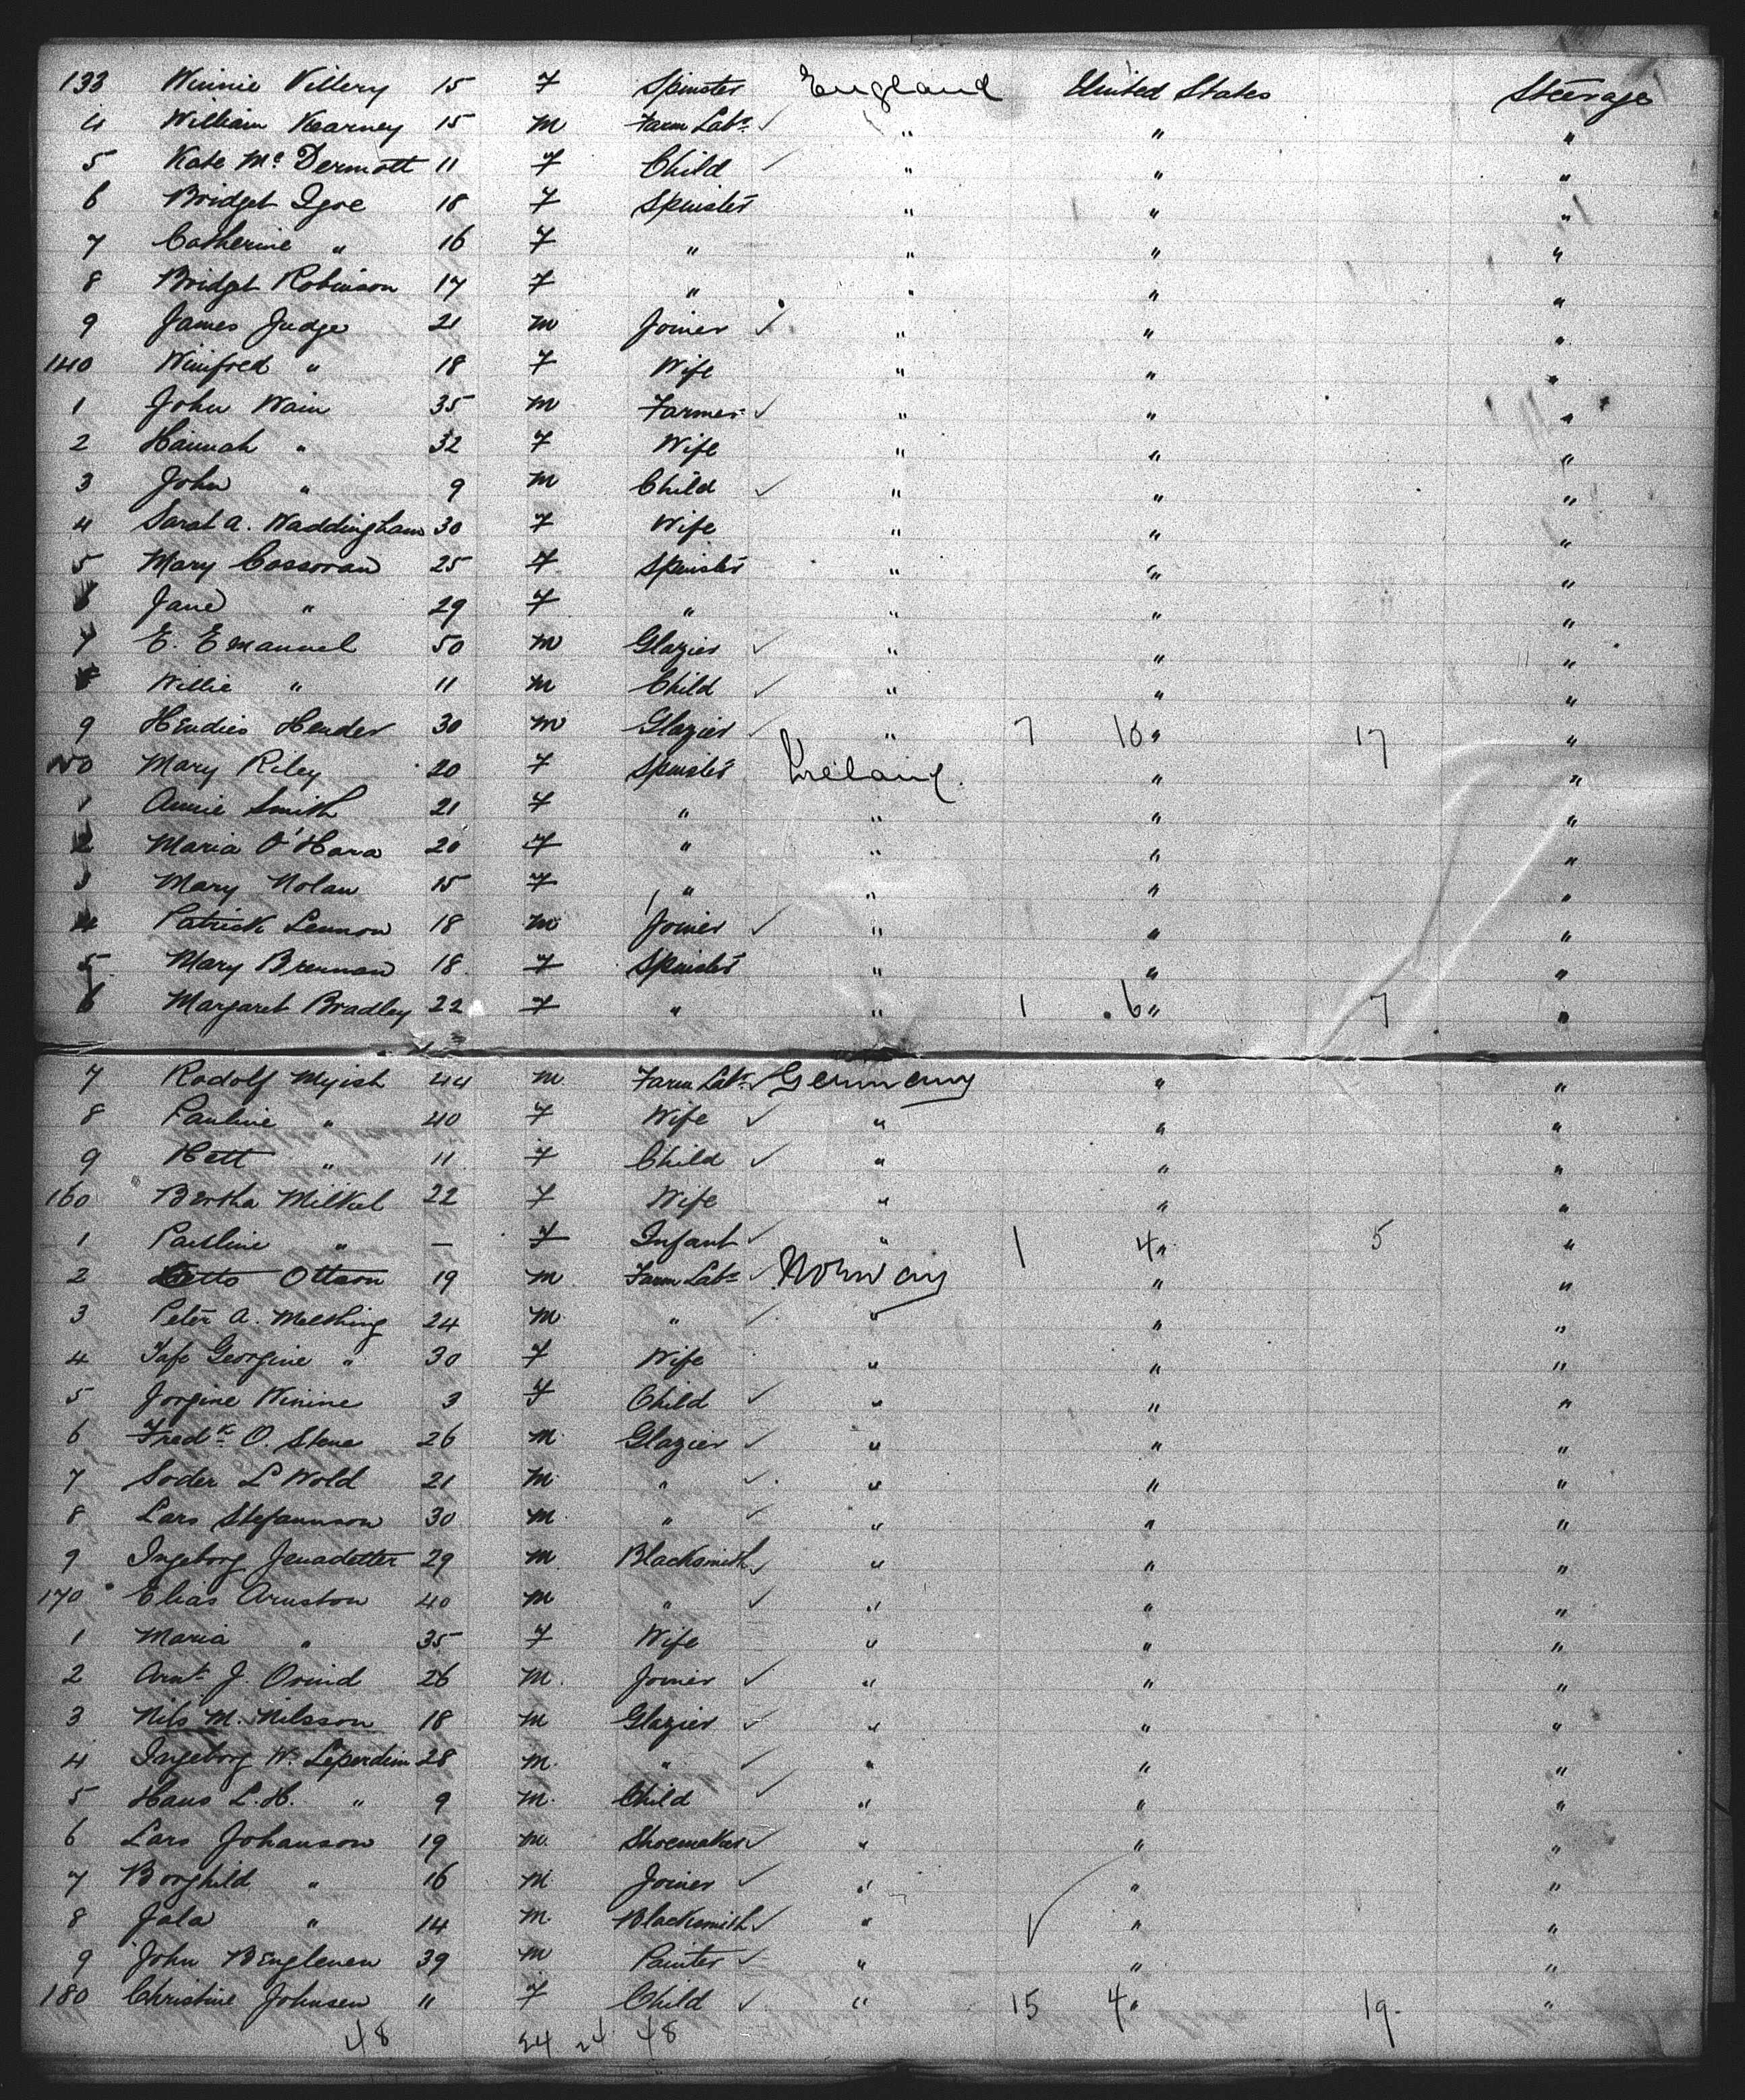 133 Winnie Villery 15 F Spinster England United States Steerage
4 William Kearney 15 M Farm Labr " " "
5 Kate McDermott 11 F Child " " "
6 Bridget Igoe 18 F Spinster " " "
7 Catherine " 16 F " " " "
8 Bridget Robinson 17 F " " " "
9 James Judge 21 M Joiner " " "
140 Winifred " 18 F Wife " " "
1 John Wain 35 M Farmer " " "
2 Hannah " 32 F Wife " " "
3 John " 9 M Child " " "
4 Sarah A. Waddingham 30 F Wife " " "
5 Mary Cossoran 25 F Spinster " " "
6 Jane " 29 F " " " "
7 E. Emanuel 50 M Glazier " " "
8 Willie " 11 M Child " " "
9 Hendies Hender 30 M Glazier " 7 10 " 17 "
150 Mary Riley 20 F Spinster Ireland " "
1 Annie Smith 21 F " " " "
2 Maria O'Hara 20 F " " " "
3 Mary Nolan 15 F " " " "
4 Patrick Lennon 18 M Joiner " " "
5 Mary Brennan 18 F Spinster " " "
6 Margaret Bradley 22 F " " 1 6 " 7 "
7 Rodolf Myish 44 M Farm Labr Germany " "
8 Pauline " 40 F Wife " " "
9 Hett " 11 F Child " " "
160 Bertha Milkel 22 F Wife " " "
1 Pauline " — F Infant " 1 4 " 5 "
2 Ottson 19 M Farm Labr Norway " "
3 Peter A. Melthing 24 M " " " "
4 Georgine " 30 F Wife " " "
5 Jorgine Winine 3 F Child " " "
6 Fredk O. Stene 26 M Glazier " " "
7 Soder L Wold 21 M " " " "
8 Lars Stefannson 30 M " " " "
9 Ingeborg Jenadotter 29 M Blacksmith " " "
170 Elias Arnston 40 M " " " "
1 Maria " 35 F Wife " " "
2 Arnt J. Ovind 26 M Joiner " " "
3 Nils M. Nilsson 18 M Glazier " " "
4 Ingeborg W. Leperdim 28 M " " " "
5 Hans L. H. " 9 M Child " " "
6 Lars Johanson 19 M Shoemaker " " "
7 Borghild " 16 M Joiner " " "
8 Jala " 14 M Blacksmith " " "
9 John Benglenen 39 M Painter " " "
180 Christine Johnsen " F Child " 15 4 " 19 "
48 24 24 48